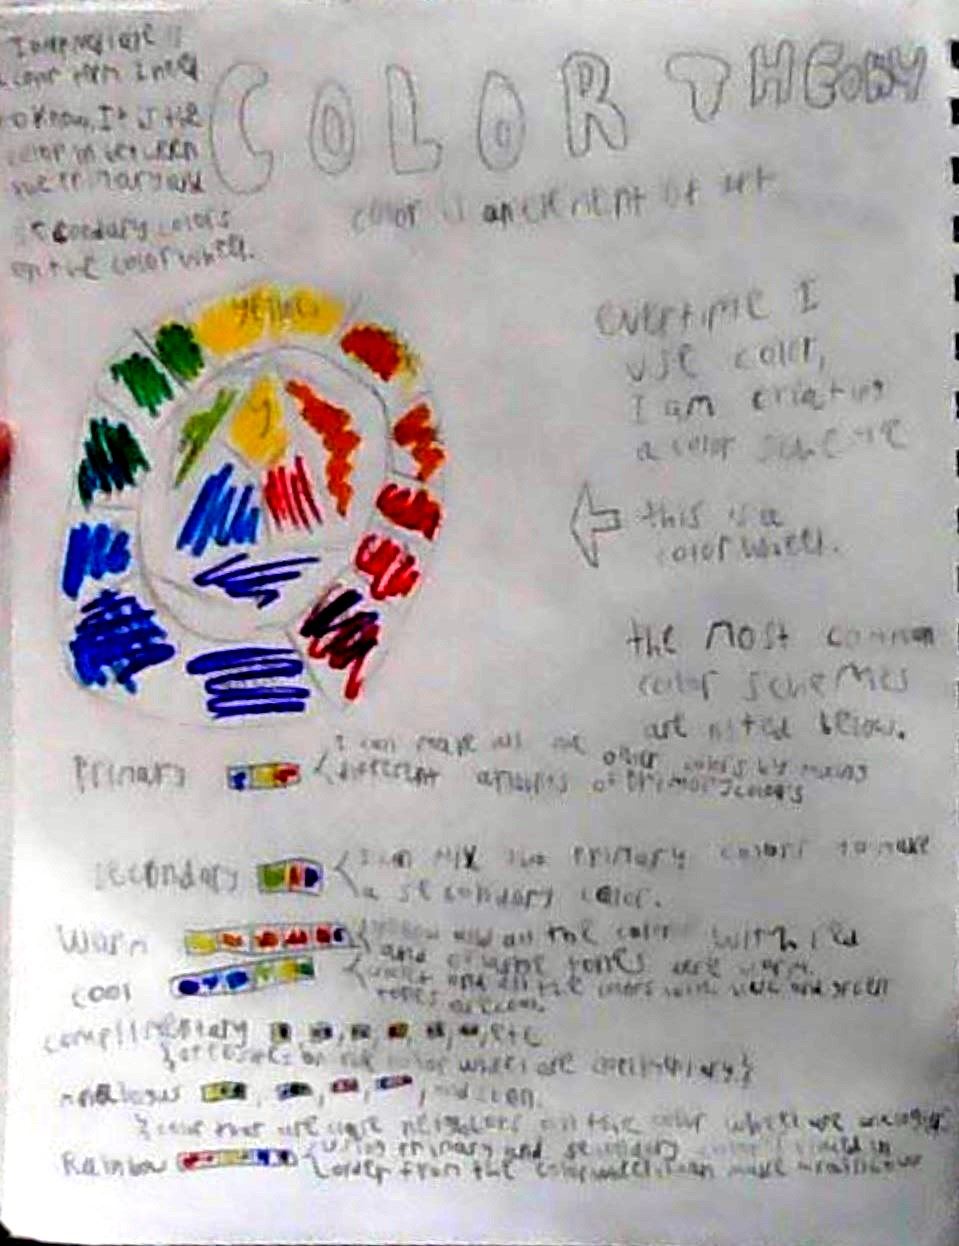 Intermediate is
a color term I need
to know. It is the
color in between
the primary and
secondary colors
on the color wheel.
COLOR THEORY
color is an element of art
yellow
y
everytime I
use color,
I am criating
a color scheme
this is a
color wheel.
the most common
color schemes
are listed below.
Primary
I can make all the other colors by mixing
different amounts of primary colors
secondary
I can mix two primary colors to make
a secondary color.
Warm
yellow and all the colors with red
and orange tones are warm.
cool
violet and all the colors with blue and green
tones are cool.
complimentary , , , , , etc
{opposites on the color wheel are
analogus , , , , and so on.
{color that are neighbors on the color wheel are
Rainbow
using primary and secondary colors in
order from the color wheel I can make a rainbow